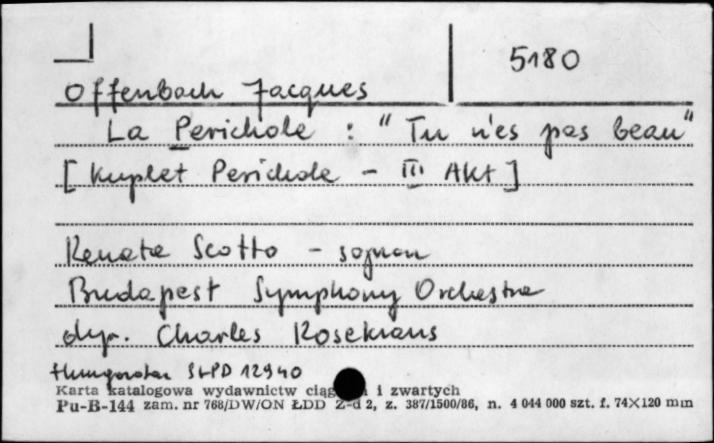 5180
Offenbach Jacques
La Perichole : "Tu n'es pas beau"
[Kuplet Perichole - III Akt]
Renata Scotto - sopran
Budapest Symphony Orchestra
dyr. Charles Rosekrans
Hungaroton SLPD 12940
Karta katalogowa wydawnictw i zwartych
Pu-B-144 zam. nr 768/DW/ON ŁDD Z-d 2, z. 387/1500/86, n. 4 044 000 szt. f. 74×120 mm